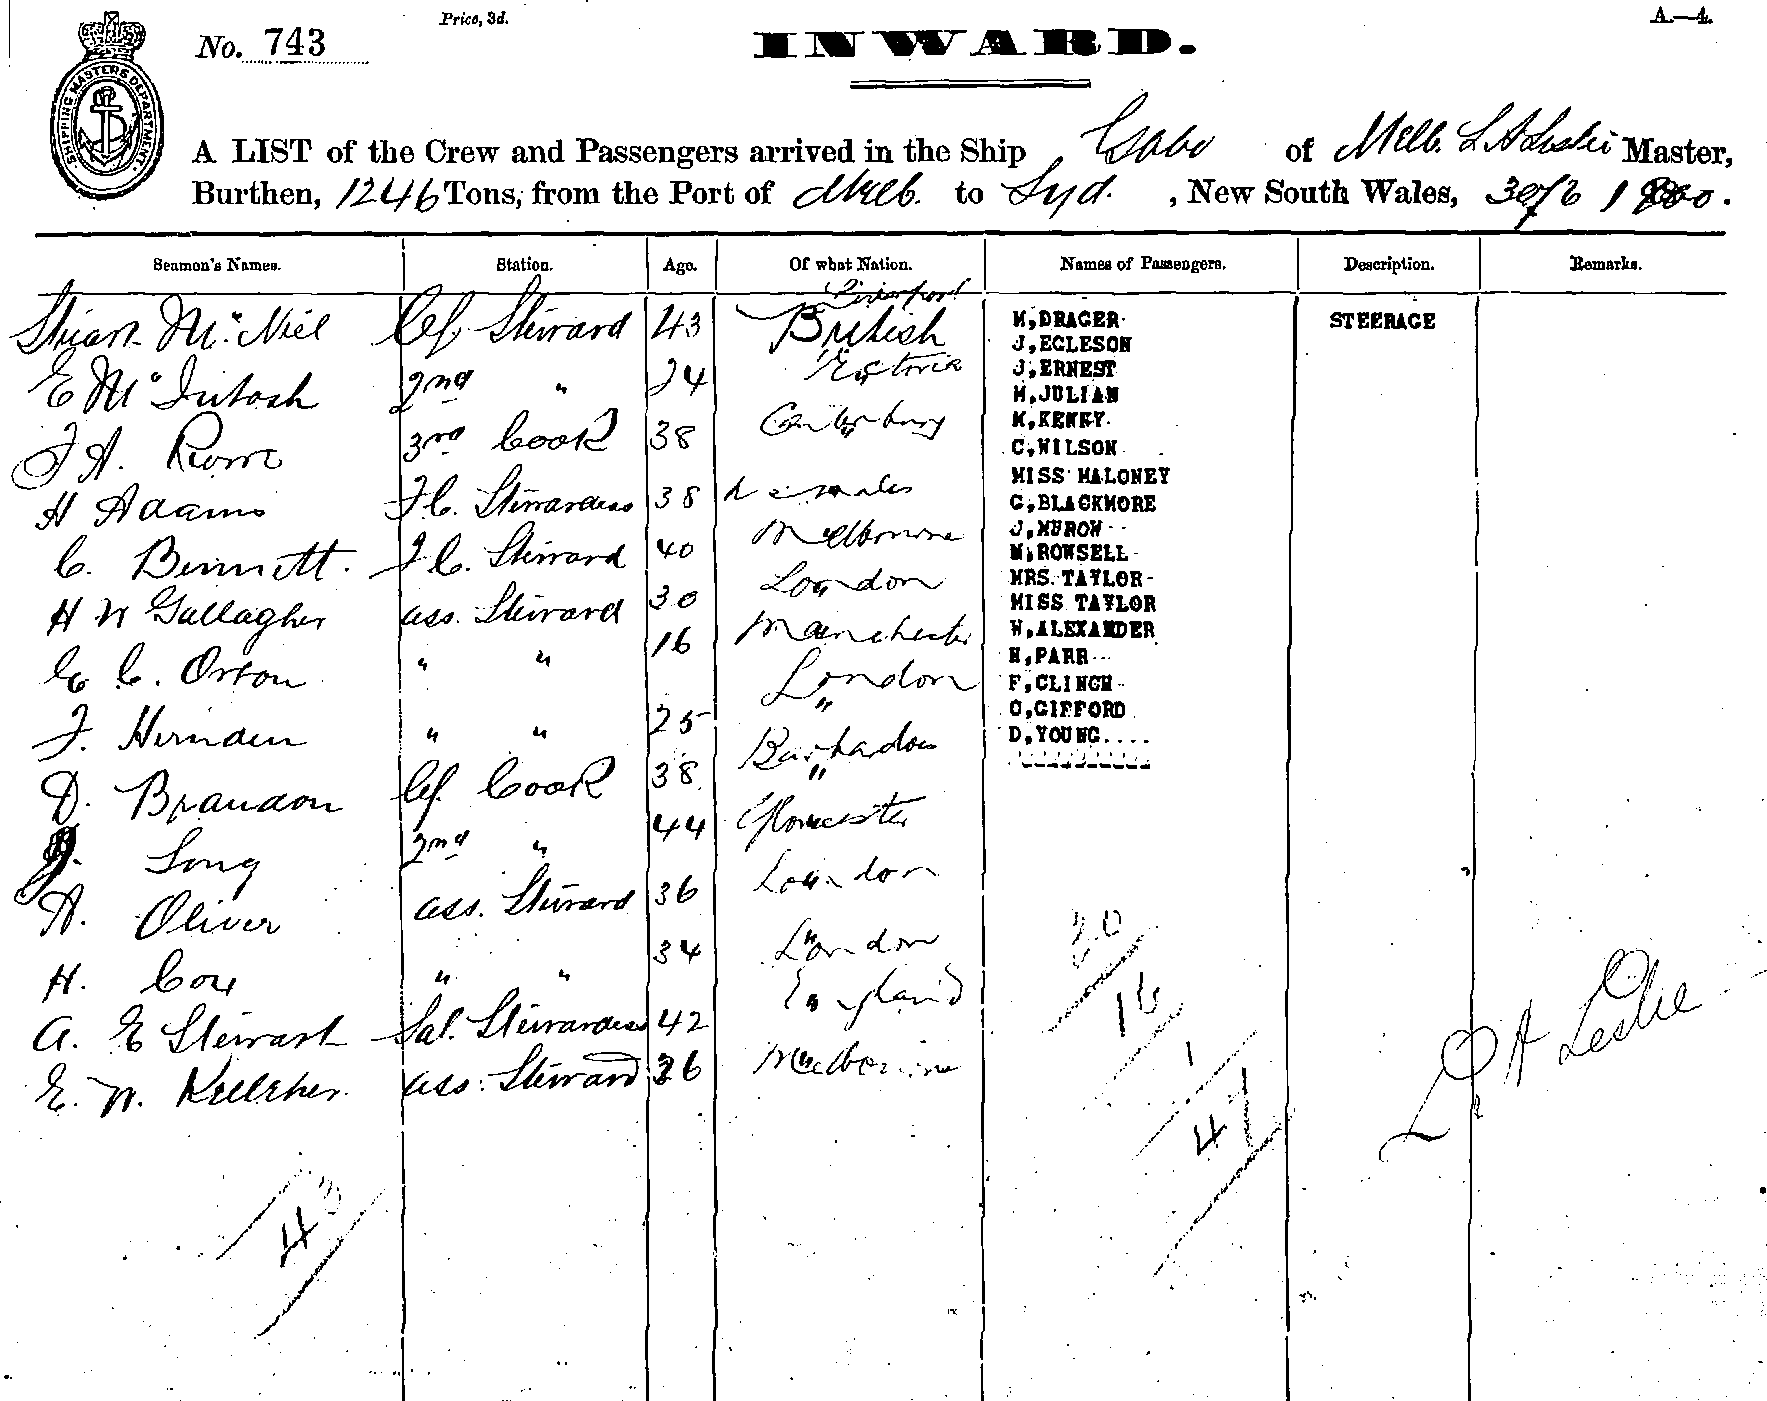 Price, 3d.
A.—4.
No. 743
INWARD.
SHIPPING MASTERS DEPARTMENT
A LIST of the Crew and Passengers arrived in the Ship Gabo of Melb. L A Leslie Master,
Burthen, 1246 Tons, from the Port of Melb. to Syd. , New South Wales, 30/6 1900.
Seamen's Names. Station. Age. Of what Nation. Names of Passengers. Description. Remarks.
Liverpool
Stuart McNiel Cf. Steward 43 British
E McIntosh 2nd " 24 Victoria
F A. Rome 3rd Cook 38 Canterbury
H Adams F.C. Stewardess 38 
C. Bennett. F.C. Steward 40 Melbourne
H W Gallagher ass. Steward 30 London
E C. Orton " " 16 Manchester
F. Hernden " " 25 London
D. Brandon Cf. Cook 38 Barbados
J. Long 2nd " 44 Gloucester
A. Oliver ass. Steward 36 London
H. Cox " " 34 London
A. E Stewart Sal. Stewardess 42 England
E. W. Kelleher ass. Steward 26 Melbourne
M,DRAGER STEERAGE
J,ECLESON
J,ERNEST
M,JULIAN
K,KENRY
C,WILSON
MISS MALONEY
C,BLACKMORE
J,MUROW
M,ROWSELL
MRS. TAYLOR
MISS TAYLOR
W,ALEXANDER
H,PARR
F,CLINCH
C,GIFFORD
D,YOUNG....
30
16
1
47
43
L A Leslie